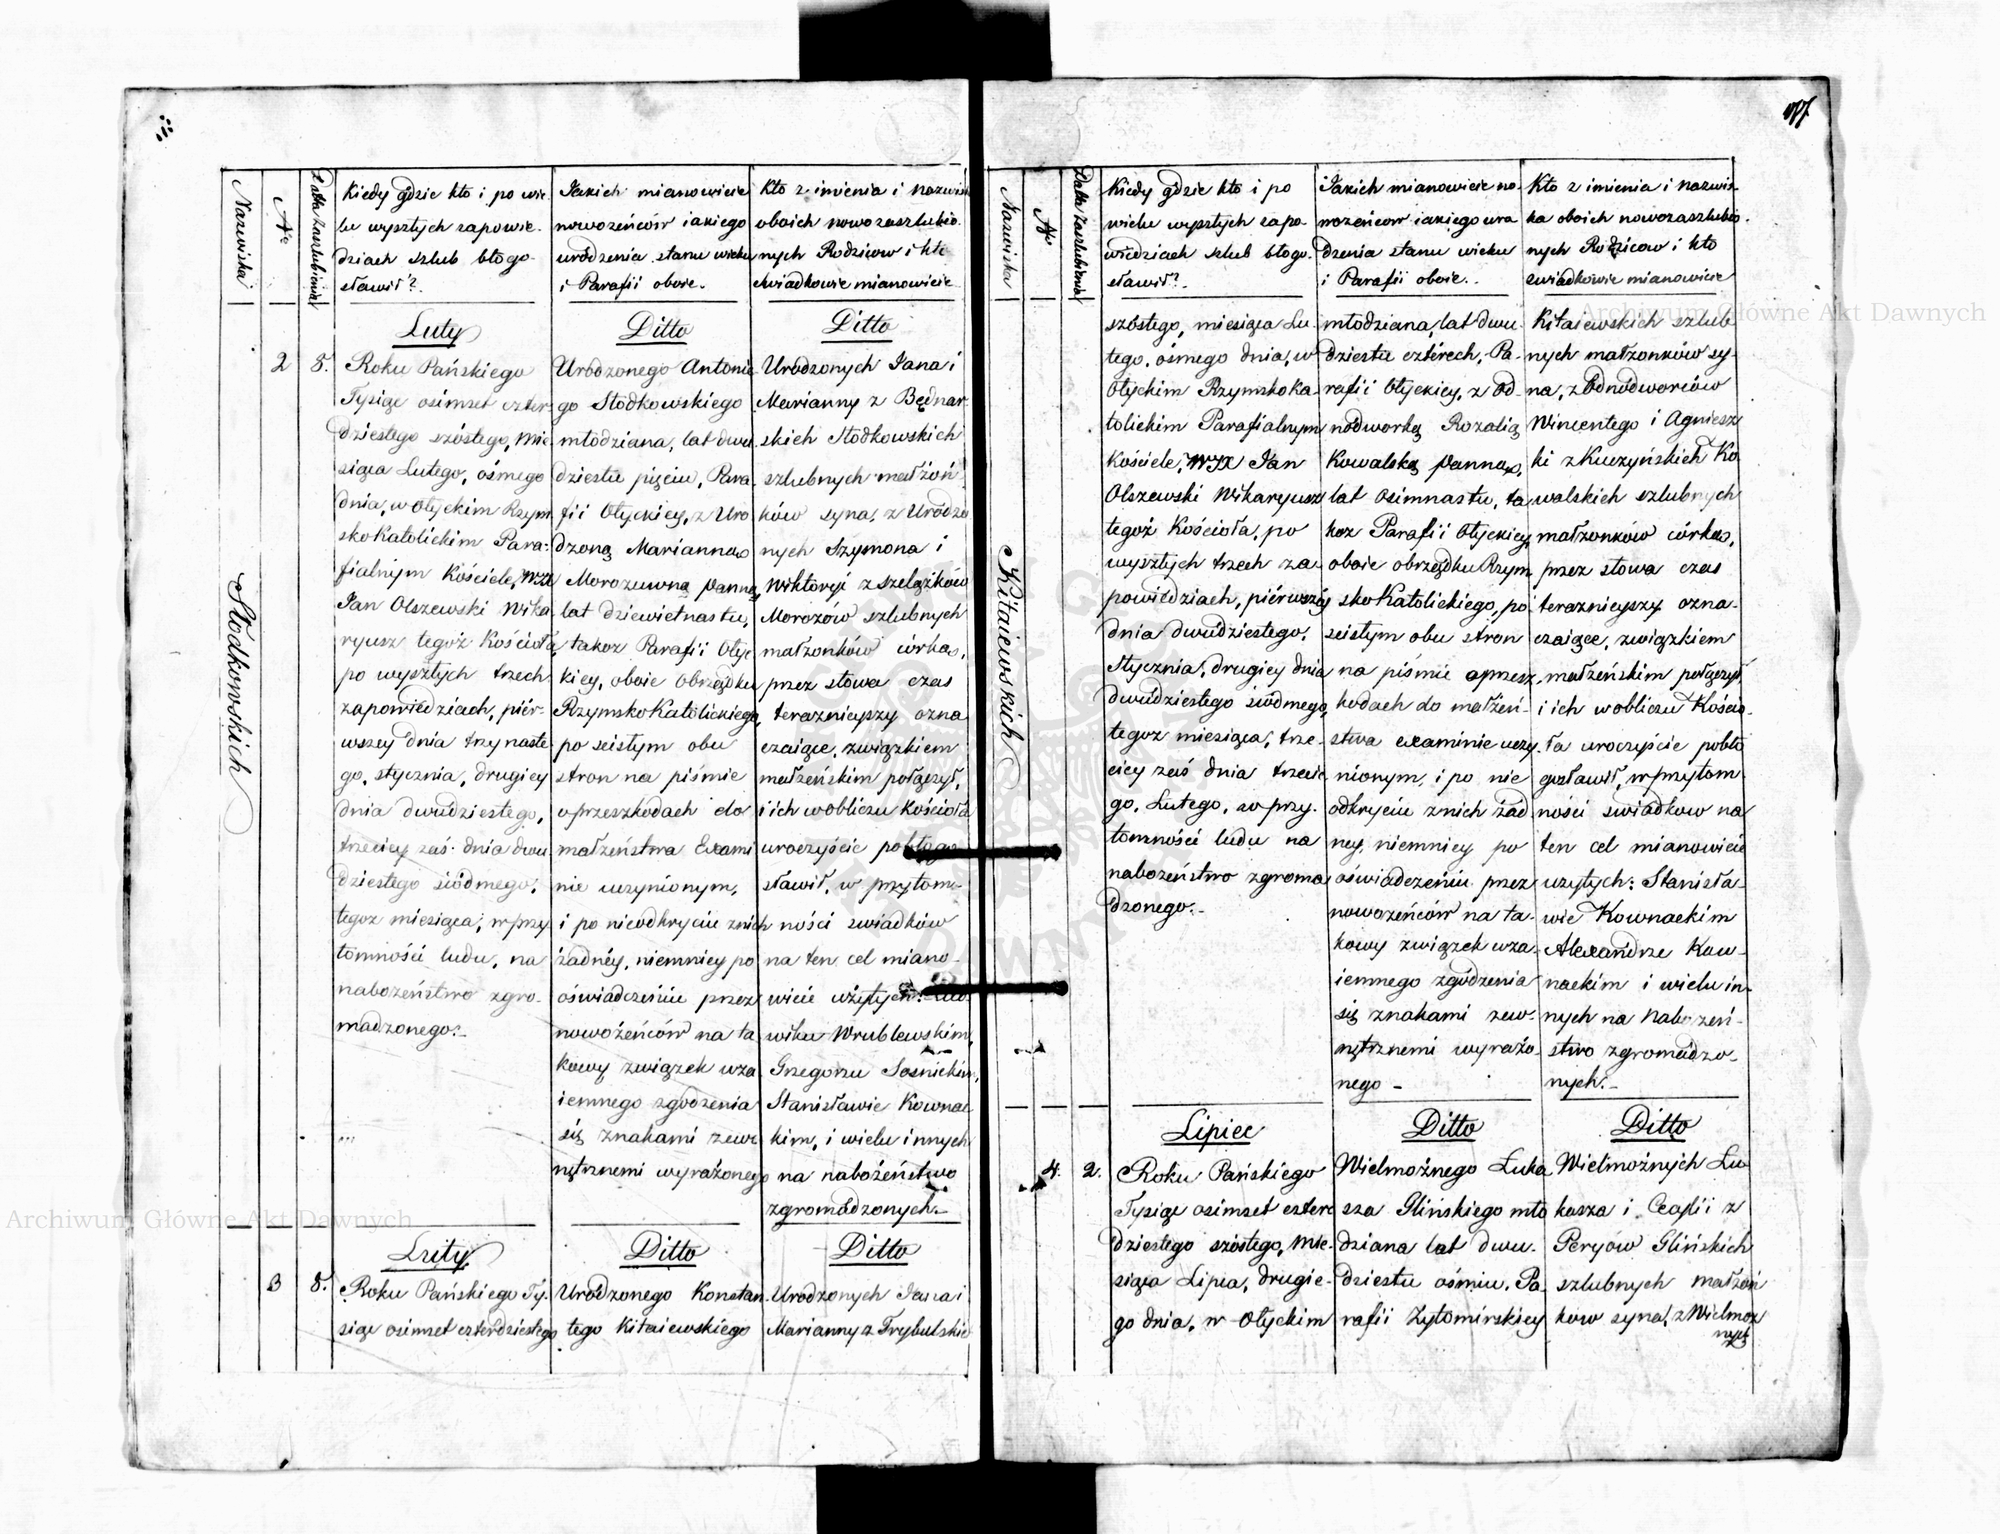 Nazwiska
№
Data Zaślubienia
Kiedy gdzie kto i po wie-
lu wyszłych zapowie-
dziach szlub błogo-
sławił?
Jakich mianowicie
nowożeńców iakiego
urodzenia stanu wieku
i Parafii oboie.
Kto z imienia i nazwisk
oboich nowozaszlubio-
nych Rodziców i kto
świadkowie mianowicie
Luty
2
8.
Roku Pańskiego
Tysiąc osimset czter-
dziestego szóstego, Mie
siąca Lutego, ósmego
dnia, w Ołyckim Rzym
skoKatolickim Para-
fialnym Kościele, WJX
Jan Olszewski Wika
ryusz tegoż Kościoła,
po wyszłych trzech
zapowiedziach, piér-
wszey dnia trzynaste
go, stycznia, drugiey
dnia dwudziestego,
trzeciey zaś dnia dwu
dziestego siódmego,
tegoż miesiąca, w przy
tomności ludu, na
nabożeństwo zgro-
madzonego.-
Ditto
Urodzonego Antonie
go Słodkowskiego
młodziana, lat dwu
dziestu pięciu, Para-
fii Ołyckiey, z Uro
dzoną Marianną
Morozuwną Panną,
lat dziewietnastu,
takoż Parafii Ołyc
kiey, oboie Obrządku
RzymskoKatolickiego,
po scisłym obu
stron na piśmie
o przeszkodach do
małżeństwa Exami
nie uczynionym,
i po nieodkryciu z nich
żadnéy, niemniey po
oświadczeniu przez
nowożeńców na ta
kowy związek wza
iemnego zgodzenia
się znakami zewn
nętrznemi wyrażonego
Ditto
Urodzonych Jana i
Marianny z Będnar
skich Słodkowskich
szlubnych małżon
ków syna, z Urodzo
nych Szymona i
Wiktoryi z Szelążków
Morozów szlubnych
małżonków córką,
przez słowa czas
teraznieyszy ozna
czaiące, związkiem
małżeńskim połączył,
i ich w obliczu Kościoła
uroczyście pobłogo
sławił, w przytom-
ności swiadków
na ten cel miano-
wicie użytych: Lud
wiku Wrublewskim,
Grzegorzu Sosnickim,
Stanisławie Kownac
kim, i wielu innych
na nabożeństwo
zgromadzonych.-
Słodkowskich
Luty
3
8.
Roku Pańskiego Ty-
siąc osimset czterdziestego
Ditto
Urodzonego Konstan
tego Kitaiewskiego
Ditto
Urodzonych Jana i
Marianny z Trybulskich
Nazwiska
№
Data Zaślubienia
Kiedy gdzie kto i po
wielu wyszłych zapo-
wiedziach szlub błogo-
sławił?
Jakich mianowicie no-
wożeńców iakiego uro
dzenia stanu wieku
i Parafii oboie.
Kto z imienia i nazwis-
ka oboich nowozaszlubio-
nych Rodziców i kto
swiadkowie mianowicie
szóstego, miesiąca Lu-
tego, ósmego dnia, w
Ołyckim Rzymskoka
tolickim Parafialnym
Kościele, WJX Jan
Olszewski Wikaryusz
tegoż Kościoła, po
wyszłych trzech za
powiedziach, piérwszéy
dnia dwudziestego,
Stycznia, drugiey dnia
dwudziestego siódmego,
tegoż miesiąca, trze-
ciey zaś dnia trzecie
go, Lutego, w przy-
tomności ludu na
nabożeństwo zgroma
dzonego.-
młodziana, lat dwu-
dziestu cztérech, Pa-
rafii Ołyckiey, z od-
nodworką Rozalią
Kowalską Panną,
lat osimnastu, ta
koż Parafii Ołyckiey,
oboie obrządku Rzym
skoKatolickiego, po
scisłym obu stron
na piśmie o przesz-
kodach do małżeń-
stwa examinie uczy-
nionym, i po nie
odkryciu z nich żad
ney, niemniey po
oświadczeniu przez
nowożeńców na ta-
kowy związek wza-
iemnego zgodzenia
się znakami zew-
nętrznemi wyrażo-
nego -
Kitaiewskich szlub
nych małżonków sy-
na, z Odnodworców
Wincentego i Agniesz
ki z Kuczyńskich Ko
walskich szlubnych
małżonków córką,
przez słowa czas
teraznieyszy ozna-
czaiące, związkiem
małżeńskim połączył,
i ich w obliczu Kościo-
ła uroczyście pobło
gosławił, w przytom
ności swiadków na
ten cel mianowicie
użytych: Stanisła-
wie Kownackim
Alexandrze Kow-
nackim i wielu in-
nych na nabożeń-
stwo zgromadzo-
nych.-
Kitaiewskich
Lipiec
4.
2.
Roku Pańskiego
Tysiąc osimset czter
dziestego szóstego, Mie-
siąca Lipca, drugie-
go dnia, w Ołyckim
Ditto
Wielmożnego Łuka
sza Glińskiego mło
dziana lat dwu-
dziestu ośmiu, Pa-
rafii Żytomirskiey
Ditto
Wielmożnych Łu
kasza i Cecylii z
Peryow Glińskich
szlubnych małżon
ków syna, z Wielmoż
nych
Archiwum Główne Akt Dawnych
Archiwum Główne Akt Dawnych